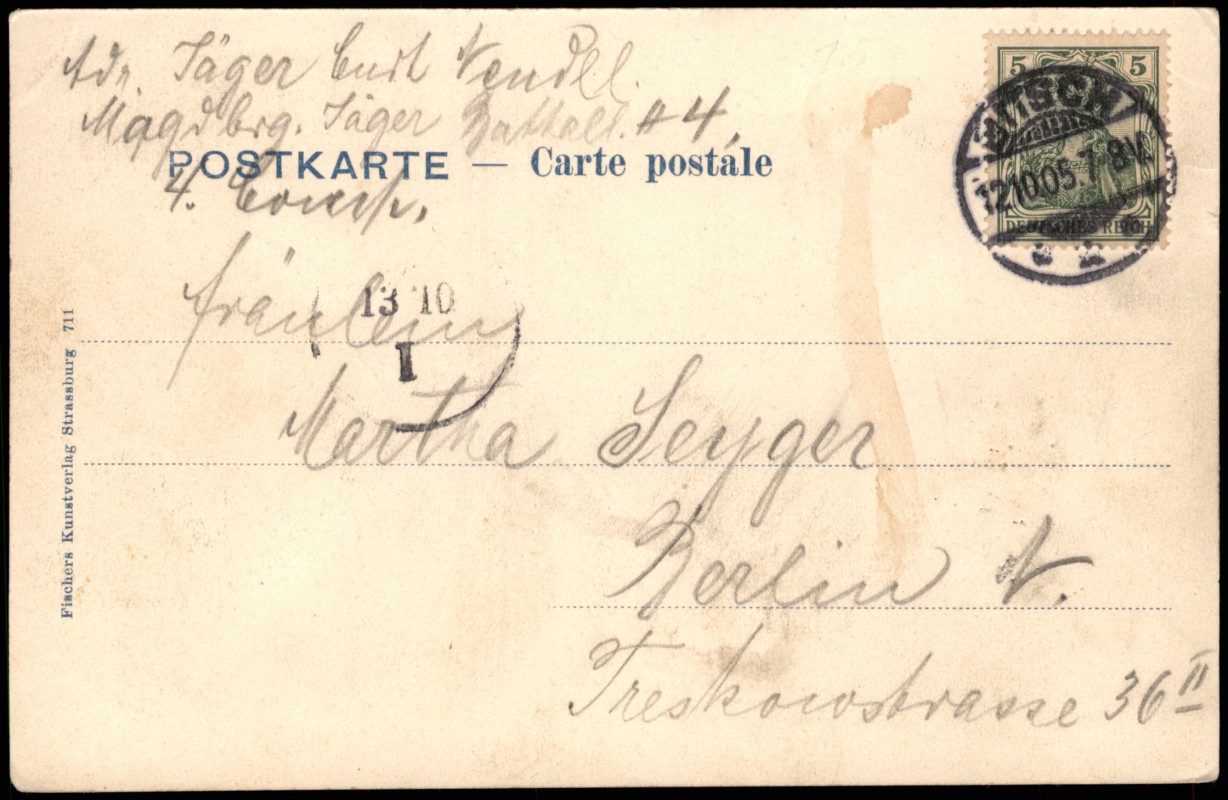 Adr. Jäger Curt Wendel.
Magdbrg. Jäger Battall. # 4,
POSTKARTE — Carte postale
4. Comp.
5 5
BITSCH
12.10.05. 7-8V.
DEUTSCHES REICH
13 10
I
Fräulein
Martha Seyger
Berlin N.
Treskowstrasse 36 II
Fischers Kunstverlag Strassburg 711